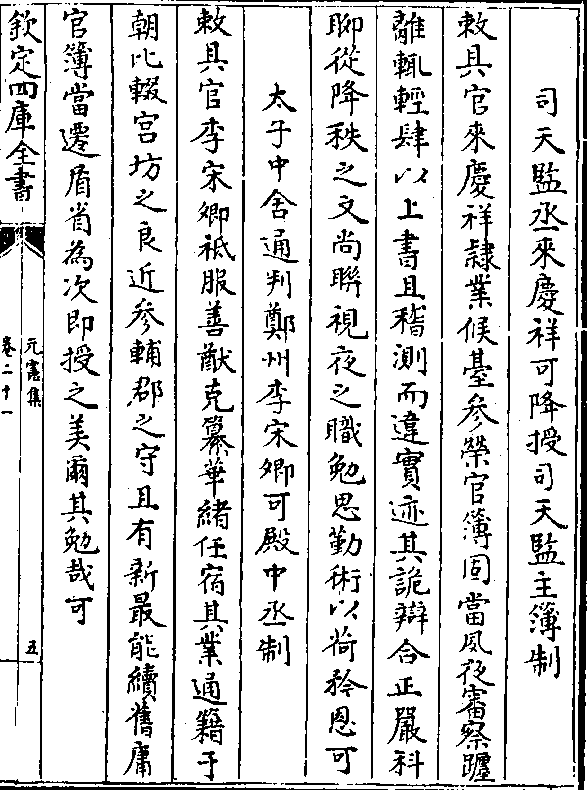 司天監丞來慶祥可降授司天監主簿制
敕具官來慶祥隸業候臺參榮官簿固當夙夜審察躔
離輒輕肆以上書且稽測而違實迹其詭辯合正嚴科
聊從降秩之文尚聯視夜之職勉思勤術以荷矜恩可
太子中舍通判鄭州李宋卿可殿中丞制
敕具官李宋卿祗服善猷克纂華緒任宿其業通籍于
朝比輟宫坊之良近參輔郡之守且有新最能續舊庸
官簿當遷眉省為次即授之美爾其勉哉可
欽定四庫全書
元憲集
卷二十一
五